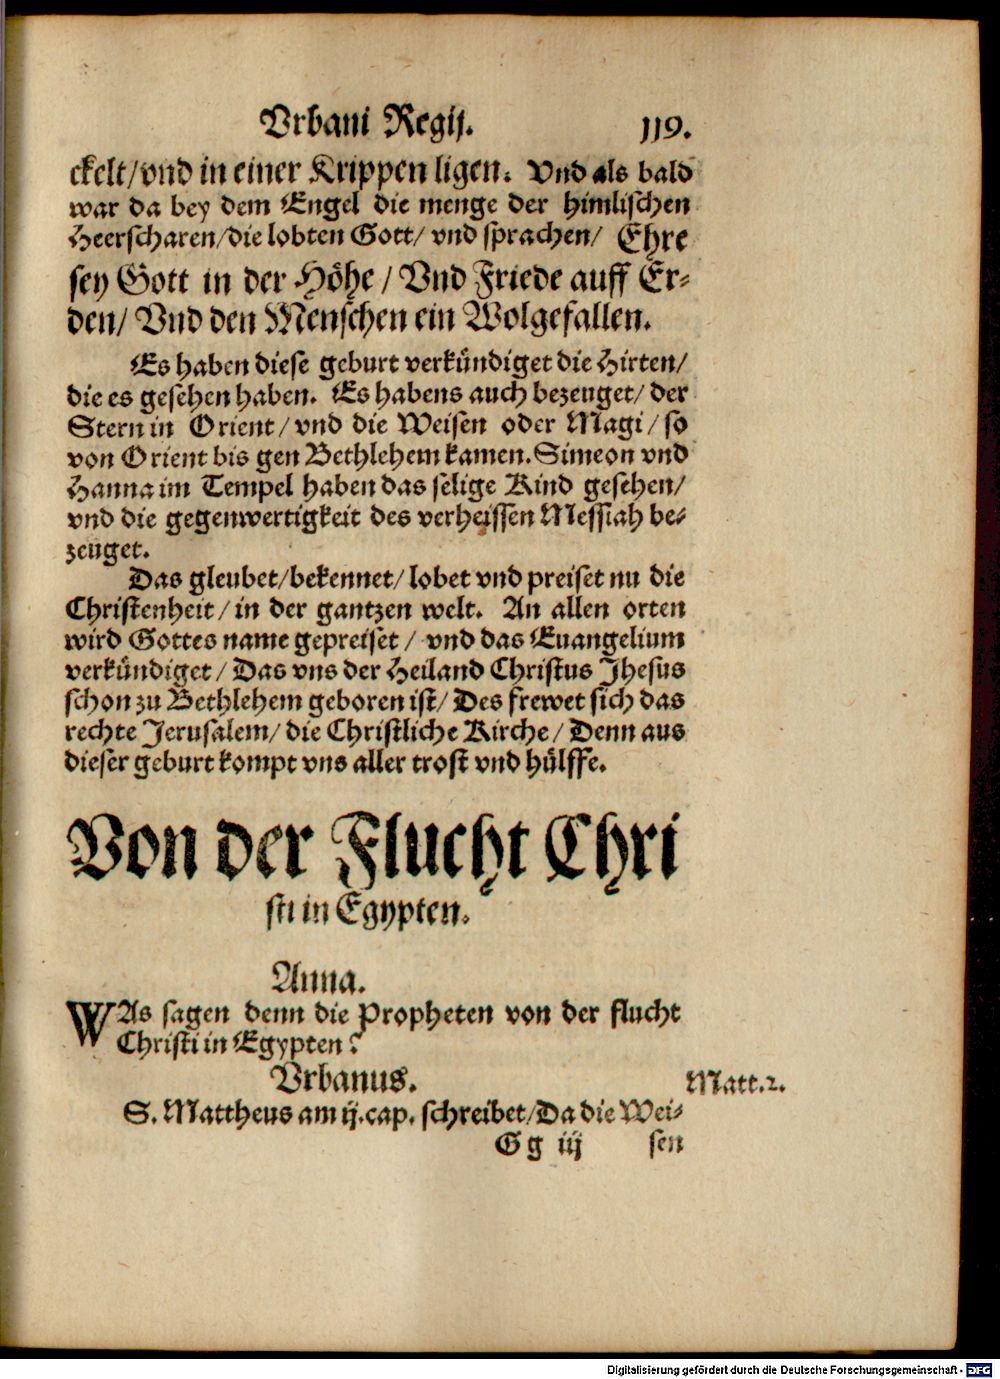 Vrbani Regij. 119.
ckelt/vnd in einer Krippen ligen. Vnd als bald
war da bey dem Engel die menge der himlischen
Heerscharen/die lobten Gott/ vnd sprachen/ Ehre
sey Gott in der Höhe / Vnd Friede auff Er-
den/ Vnd den Menschen ein Wolgefallen.
Es haben diese geburt verkündiget die Hirten/
die es gesehen haben. Es habens auch bezeuget/ der
Stern in Orient / vnd die Weisen oder Magi / so
von Orient bis gen Bethlehem kamen. Simeon vnd
Hanna im Tempel haben das selige Kind gesehen/
vnd die gegenwertigkeit des verheissen Messiah be-
zeuget.
Das gleubet/bekennet/ lobet vnd preiset nu die
Christenheit / in der gantzen welt. An allen orten
wird Gottes name gepreiset / vnd das Euangelium
verkündiget / Das vns der Heiland Christus Jhesus
schon zu Bethlehem geboren ist/ Des frewet sich das
rechte Jerusalem/ die Christliche Kirche / Denn aus
dieser geburt kompt vns aller trost vnd hülffe.
Von der Flucht Chri
sti in Egypten.
Anna.
WAs sagen denn die Propheten von der flucht
Christi in Egypten?
Vrbanus. Matt.2.
S. Mattheus am ij.cap. schreibet/Da die Wei-
G g iij sen
Digitalisierung gefördert durch die Deutsche Forschungsgemeinschaft - DFG